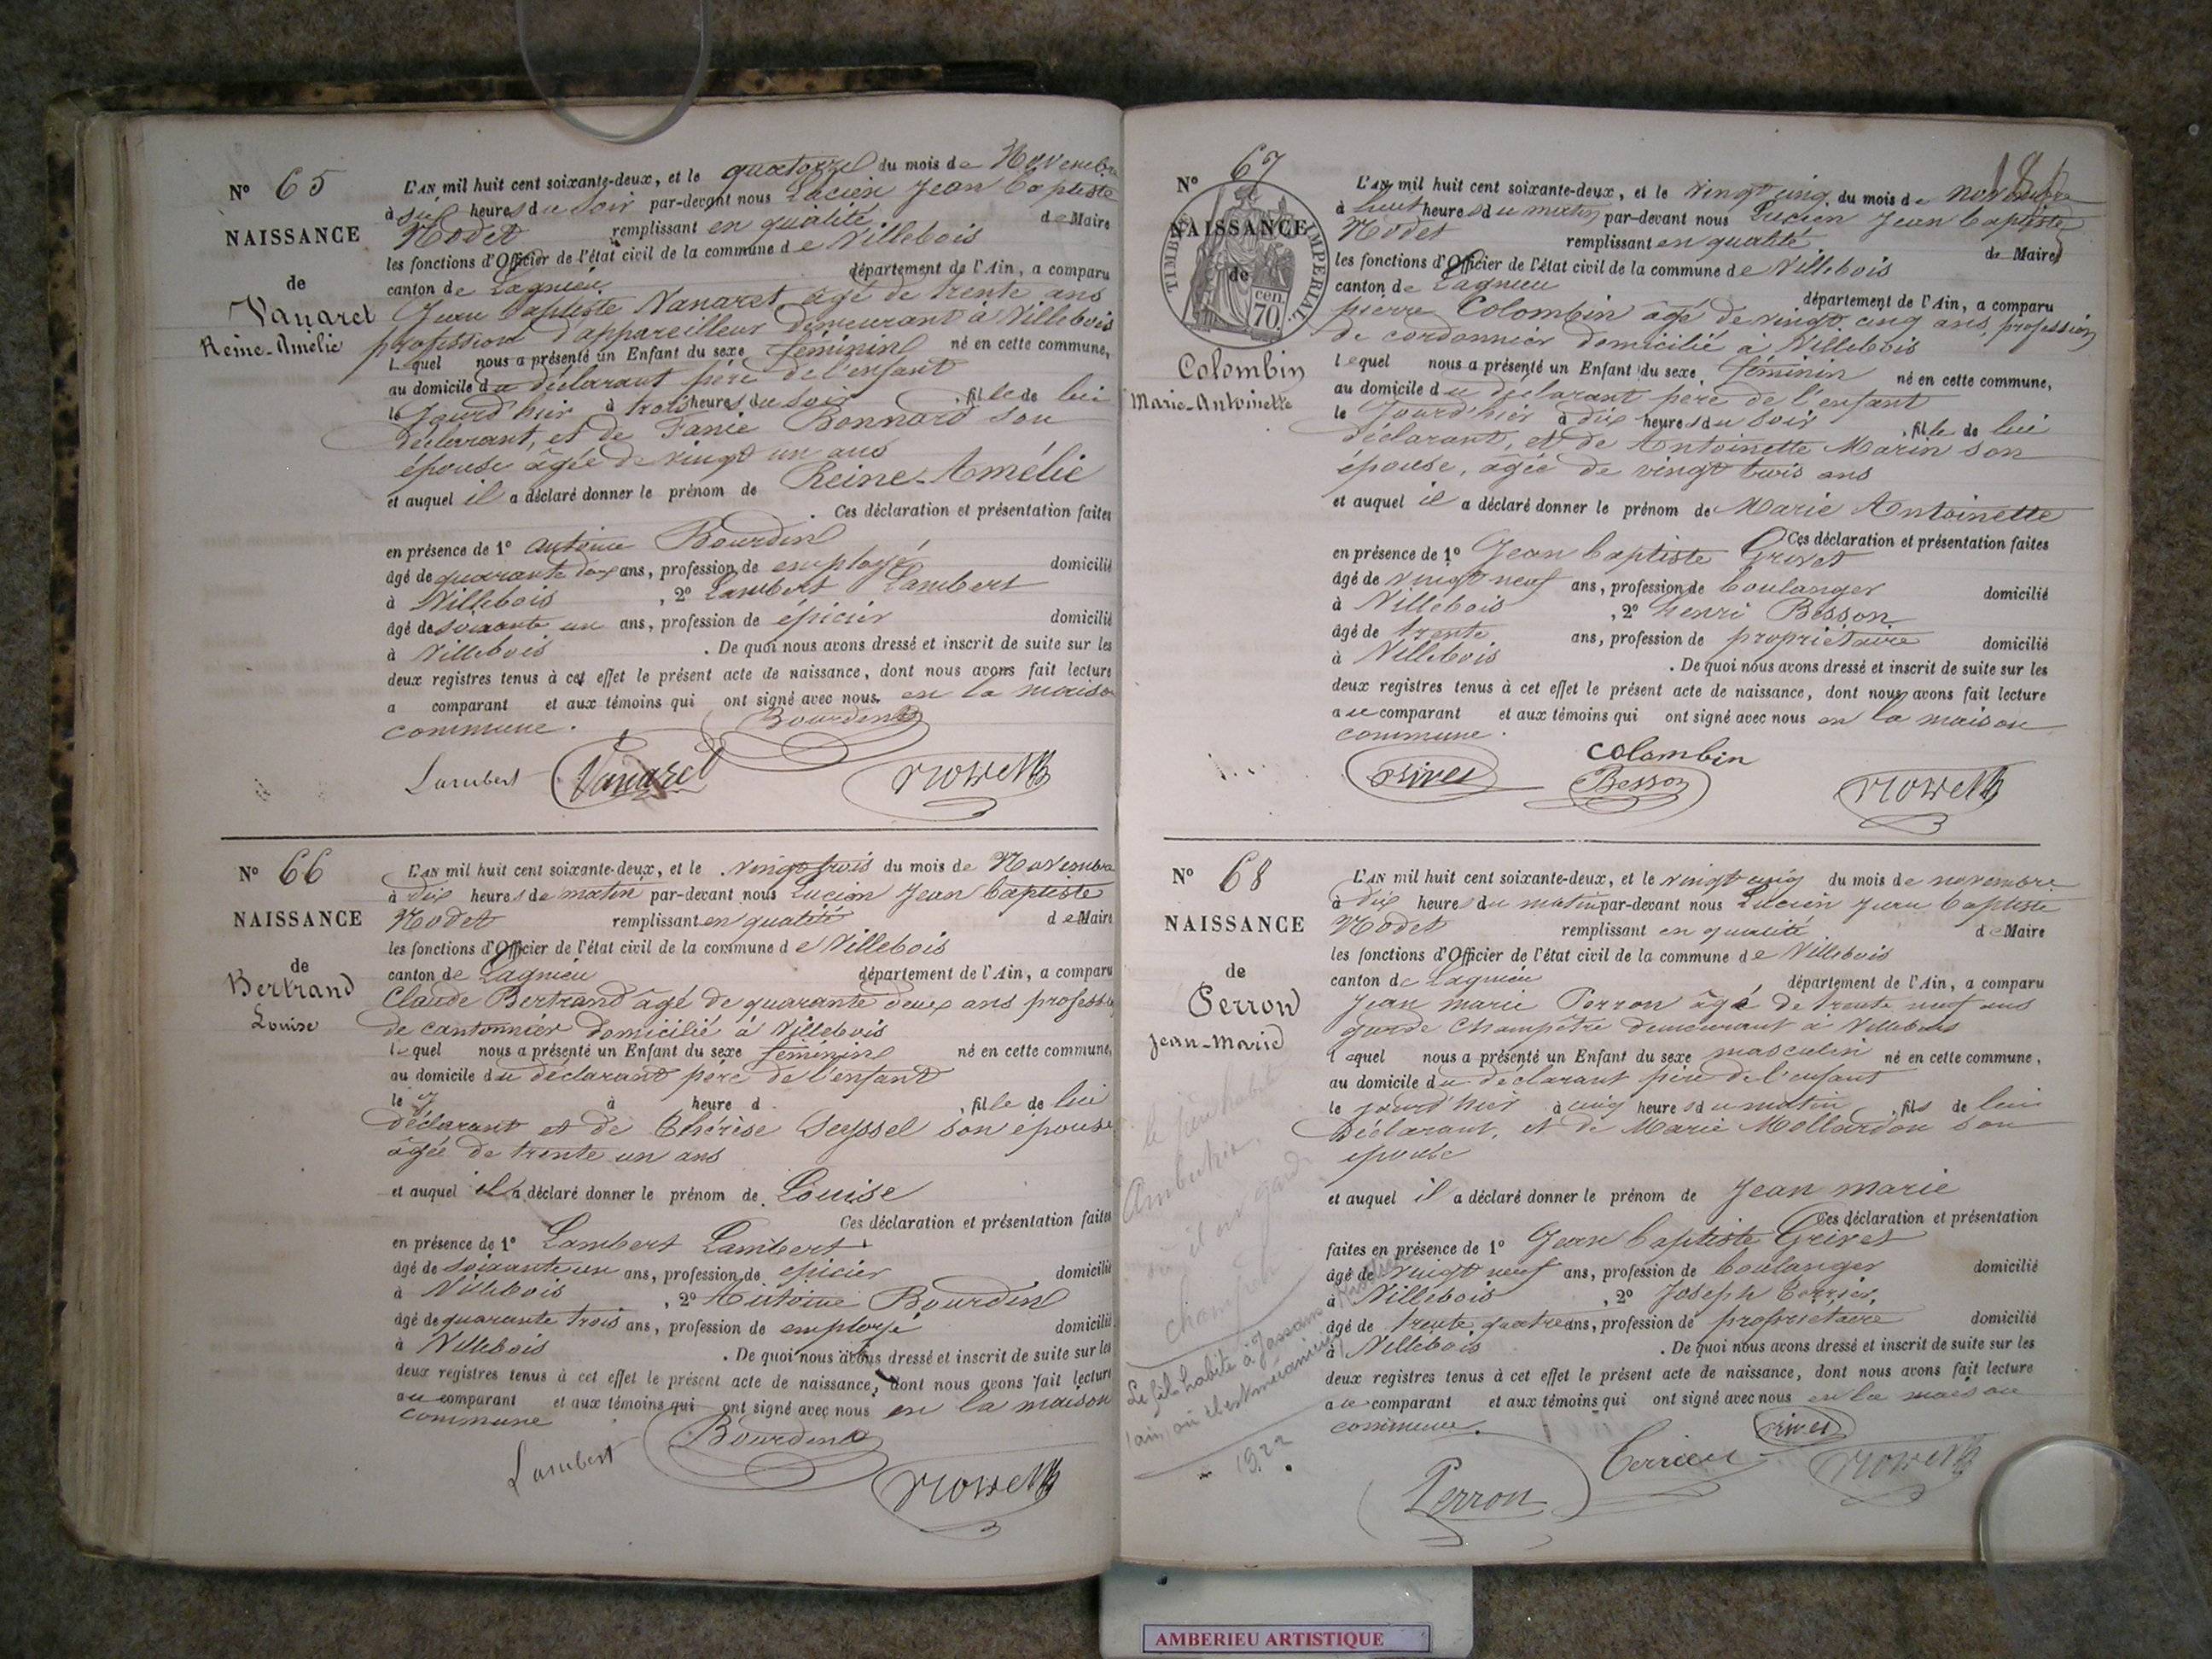 N° 65
NAISSANCE
de
Vanaret
Reine-Amélie
L'AN mil huit cent soixante-deux, et le quatorze du mois de Novembre
à six heures du soir par-devant nous Lucien Jean Baptiste
Nodet remplissant en qualité de Maire
les fonctions d'Officier de l'état civil de la commune de Villebois
canton de Lagnieu département de l'Ain, a comparu
Jean Baptiste Vanaret, âgé de trente ans
profession d'appareilleur demeurant à Villebois
lequel nous a présenté un Enfant du sexe féminin né en cette commune,
au domicile du déclarant père de l'enfant
le Jourd'hier à trois heures du soir, fille de lui
déclarant, et de Fanie Bonnard son
épouse âgée de vingt un ans
et auquel il a déclaré donner le prénom de Reine-Amélie
Ces déclaration et présentation faites
en présence de 1° Antoine Bourdin
âgé de quarante deux ans, profession de employé domicilié
à Villebois, 2° Lambert Lambert
âgé de soixante un ans, profession de épicier domicilié
à Villebois. De quoi nous avons dressé et inscrit de suite sur les
deux registres tenus à cet effet le présent acte de naissance, dont nous avons fait lecture
a comparant et aux témoins qui ont signé avec nous en la maison
commune.
Bourdin
Lambert Vanaret
N° 66
NAISSANCE
de
Bertrand
Louise
L'AN mil huit cent soixante-deux, et le vingt trois du mois de Novembre
à dix heures de matin par-devant nous Lucien Jean Baptiste
Nodet remplissant en qualité de Maire
les fonctions d'Officier de l'état civil de la commune de Villebois
canton de Lagnieu département de l'Ain, a comparu
Claude Bertrand âgé de quarante deux ans profession
de cantonnier domicilié à Villebois
lequel nous a présenté un Enfant du sexe féminin né en cette commune,
au domicile du déclarant père de l'enfant
le à heure d, fille de lui
déclarant et de Thérèse Seyssel son épouse
âgée de trente un ans
et auquel il a déclaré donner le prénom de Louise
Ces déclaration et présentation faites
en présence de 1° Lambert Lambert
âgé de soixante un ans, profession de épicier domicilié
à Villebois, 2° Antoine Bourdin
âgé de quarante trois ans, profession de employé domicilié
à Villebois. De quoi nous avons dressé et inscrit de suite sur les
deux registres tenus à cet effet le présent acte de naissance, dont nous avons fait lecture
au comparant et aux témoins qui ont signé avec nous en la maison
commune
Lambert Bourdin
N° 67
TIMBRE IMPERIAL
70 cen.
NAISSANCE
de
Colombin
Marie-Antoinette
L'AN mil huit cent soixante-deux, et le vingt cinq du mois de novembre
à huit heures du matin par-devant nous Lucien Jean Baptiste
Nodet remplissant en qualité de Maire
les fonctions d'Officier de l'état civil de la commune de Villebois
canton de Lagnieu département de l'Ain, a comparu
pierre Colombin âgé de vingt cinq ans profession
de cordonnier domicilié à Villebois
lequel nous a présenté un Enfant du sexe féminin né en cette commune,
au domicile du déclarant père de l'enfant
le Jourd'hier à dix heures du soir, fille de lui
déclarant, et de Antoinette Marin son
épouse, âgée de vingt trois ans
et auquel il a déclaré donner le prénom de Marie Antoinette
Ces déclaration et présentation faites
en présence de 1° Jean Baptiste Grivet
âgé de vingt neuf ans, profession de boulanger domicilié
à Villebois, 2° henri Besson
âgé de trente ans, profession de propriétaire domicilié
à Villebois. De quoi nous avons dressé et inscrit de suite sur les
deux registres tenus à cet effet le présent acte de naissance, dont nous avons fait lecture
au comparant et aux témoins qui ont signé avec nous en la maison
commune.
colombin
Grivet Besson
N° 68
NAISSANCE
de
Perron
Jean-Marie
L'AN mil huit cent soixante-deux, et le vingt cinq du mois de novembre
à dix heures du matin par-devant nous Lucien Jean Baptiste
Nodet remplissant en qualité de Maire
les fonctions d'Officier de l'état civil de la commune de Villebois
canton de Lagnieu département de l'Ain, a comparu
Jean marie Perron âgé de trente neuf ans
garde Champêtre demeurant à Villebois
lequel nous a présenté un Enfant du sexe masculin né en cette commune,
au domicile du déclarant père de l'enfant
le jourd'hier à cinq heures du matin, fils de lui
déclarant, et de Marie Mollardon son
épouse
et auquel il a déclaré donner le prénom de Jean marie
Ces déclaration et présentation
faites en présence de 1° Jean Baptiste Grivet
âgé de vingt neuf ans, profession de boulanger domicilié
à Villebois, 2° Joseph
âgé de trente quatre ans, profession de propriétaire domicilié
à Villebois. De quoi nous avons dressé et inscrit de suite sur les
deux registres tenus à cet effet le présent acte de naissance, dont nous avons fait lecture
au comparant et aux témoins qui ont signé avec nous en la maison
commune.
Grivet
Perron
le père habite
Ambutrix
où il est garde
champêtre
Le fils habite à Jassans Riottier
(ain) où il est mécanicien
1922
AMBERIEU ARTISTIQUE